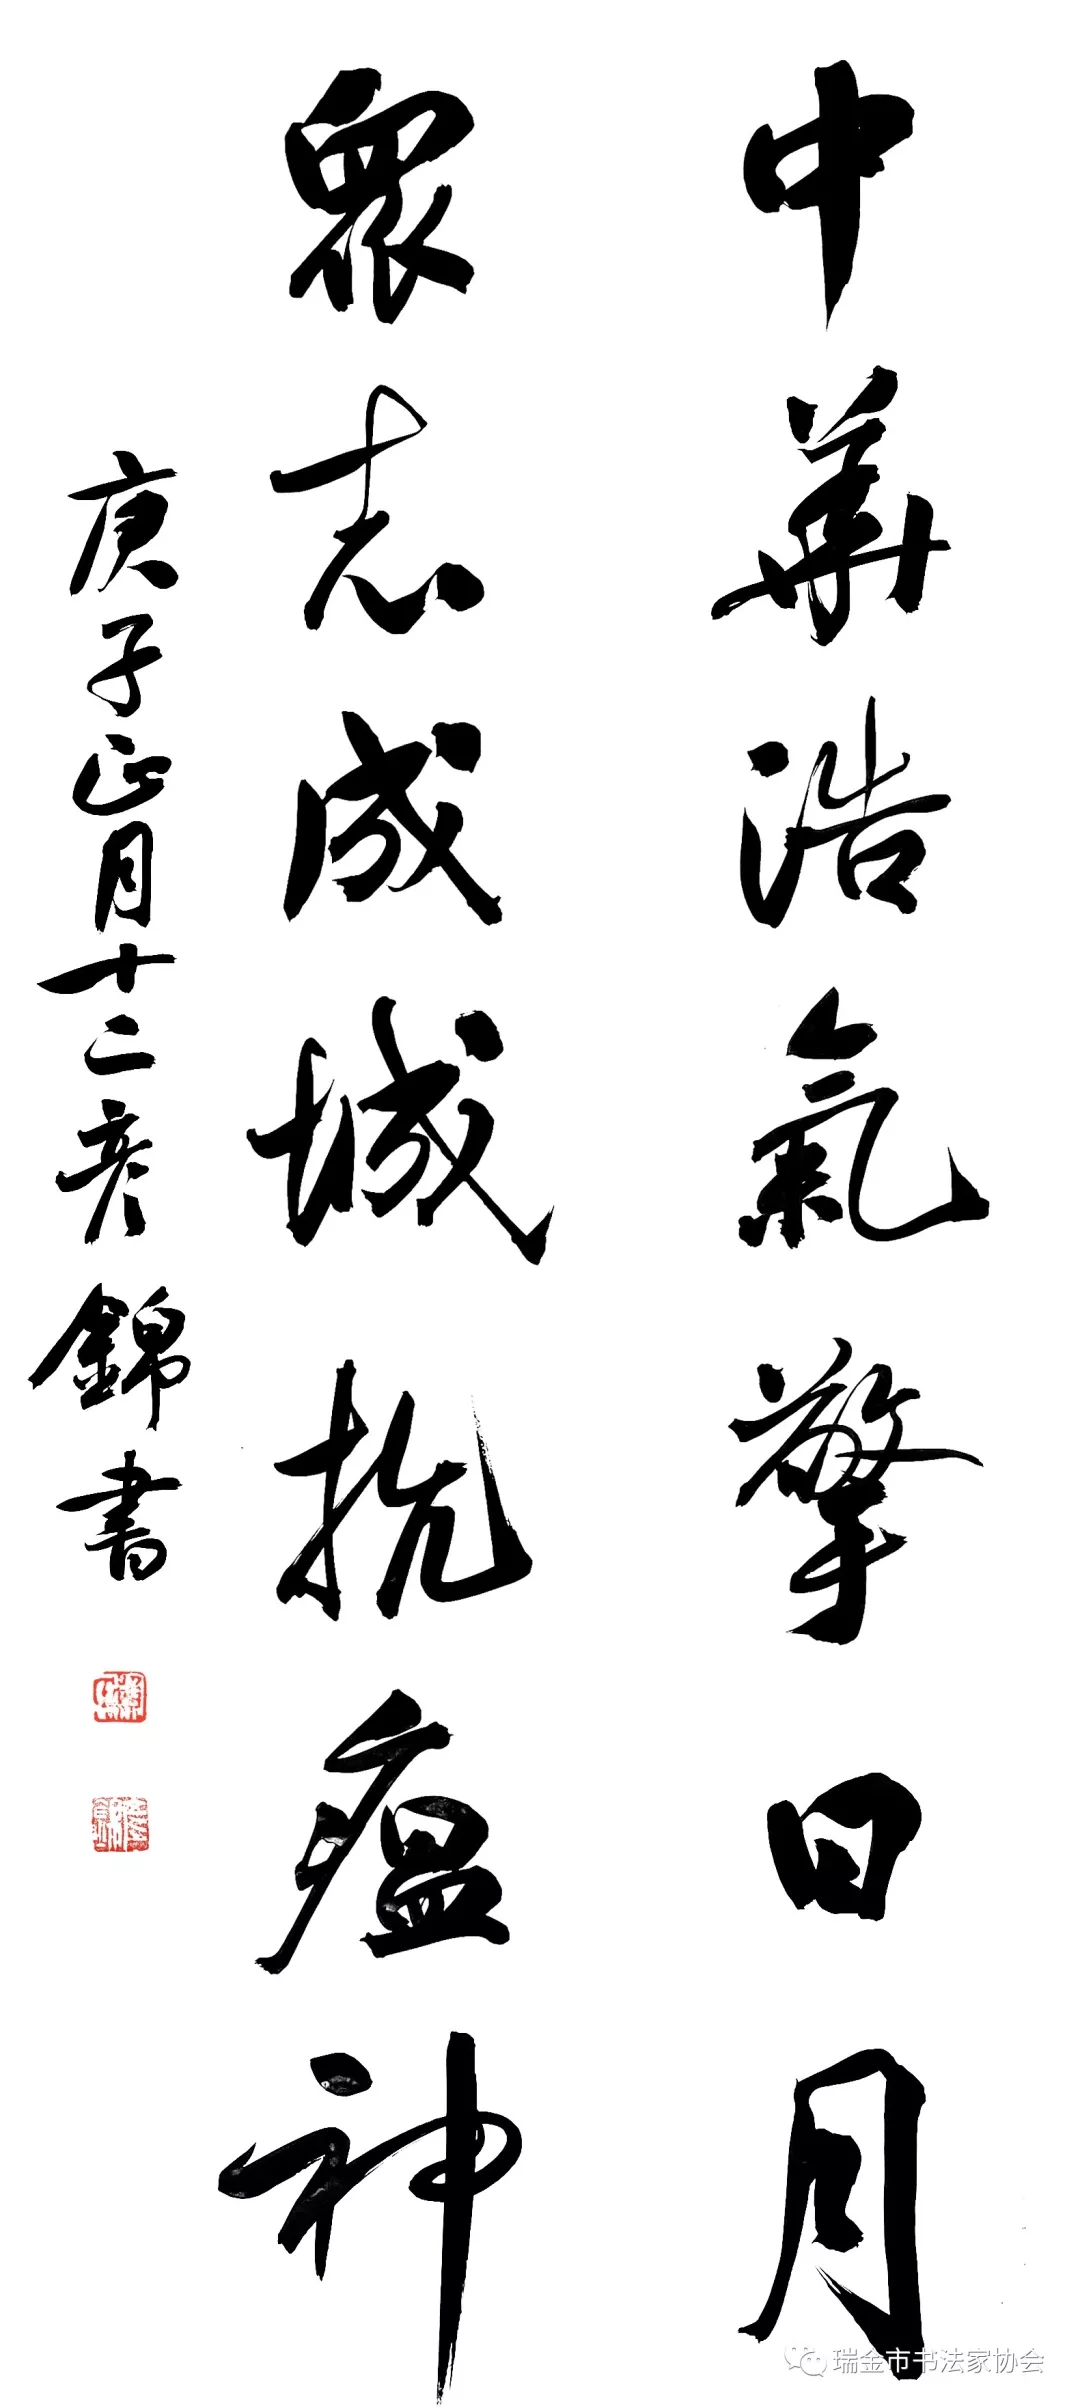 中華浩氣擎日月
眾志成城抗瘟神
庚子正月十二彦錦書
瑞金市书法家协会